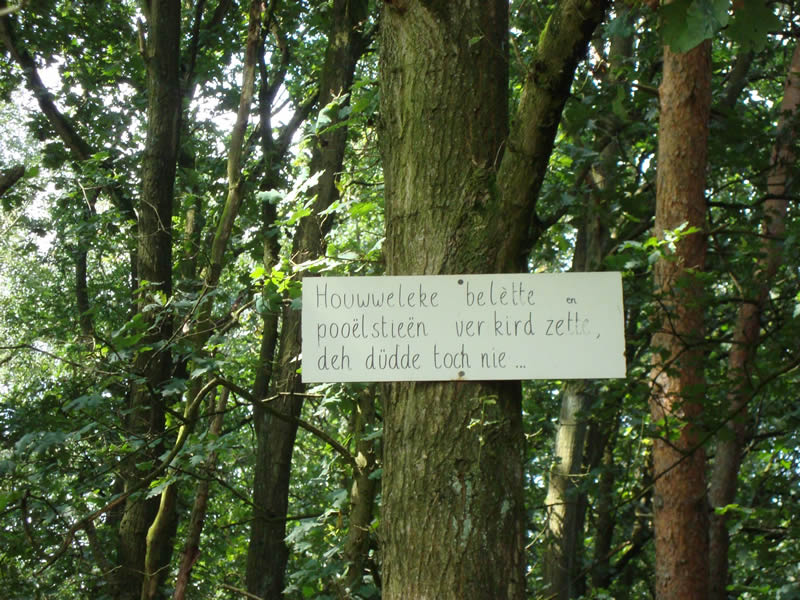 Houwweleke belètte en
pooëlstieën ver kird zette,
deh düdde toch nie ...